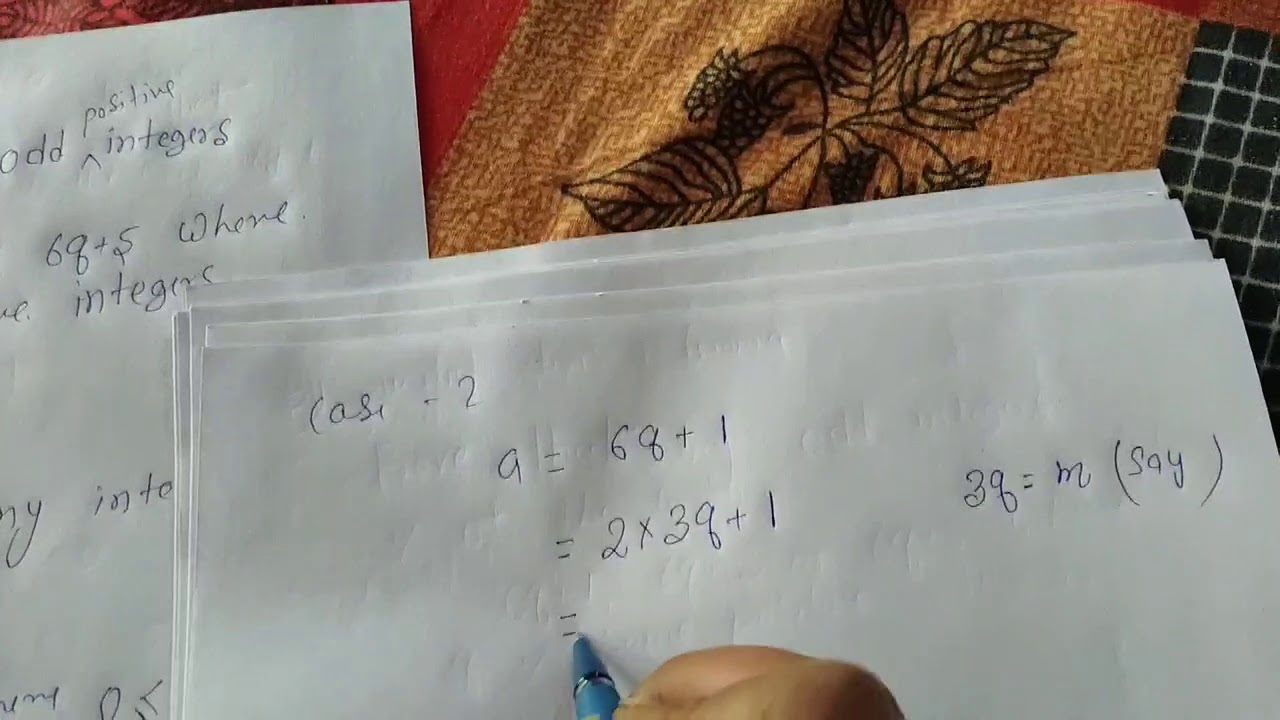 positive
odd ^ integers
6q+5 where
integers
inte
Case - 2
a = 6q + 1
= 2×3q + 1
3q = m (say)
=
0≤